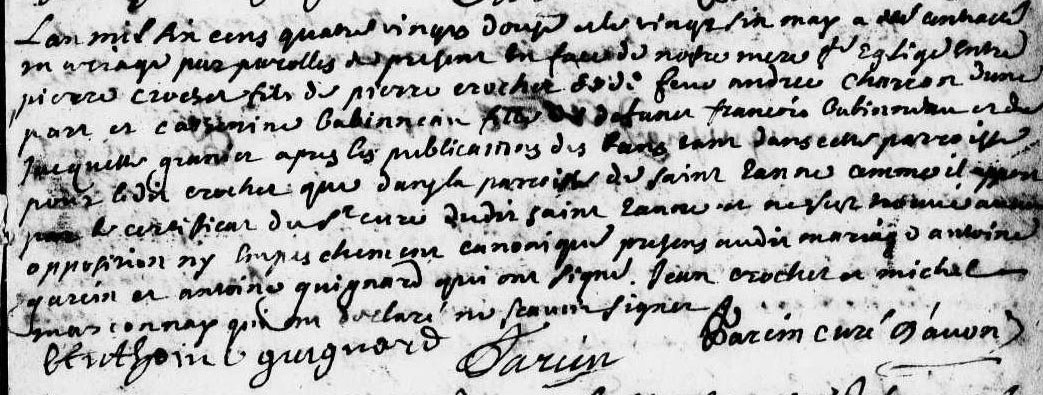 Lan mil six cens quatre vingts douze et le vingt six may a esté contracté
mariage par parolles de present en face de notre mere ste Eglise Entre
pierre crochet fils de pierre crochet et de feue andree charcon dune
part et catherine babinneau fille de defunct francois babinneau et de
Jacquette granier apres les publications des bans tant dans cette parroisse
pour ledit crochet que dans la parroisse de saint Eanne comme il appert
par le certificat du Sr curé dudit saint Eanne et ne sest trouvé aucune
opposition ny Empeschement canonique presens audit mariage antoine
garcin et antoine guignard qui ont signé. Jean crochet et michel
massonnay qui ont declaré ne scavoir signer
Anthoine guignard Garcin Garcin curé D'avon